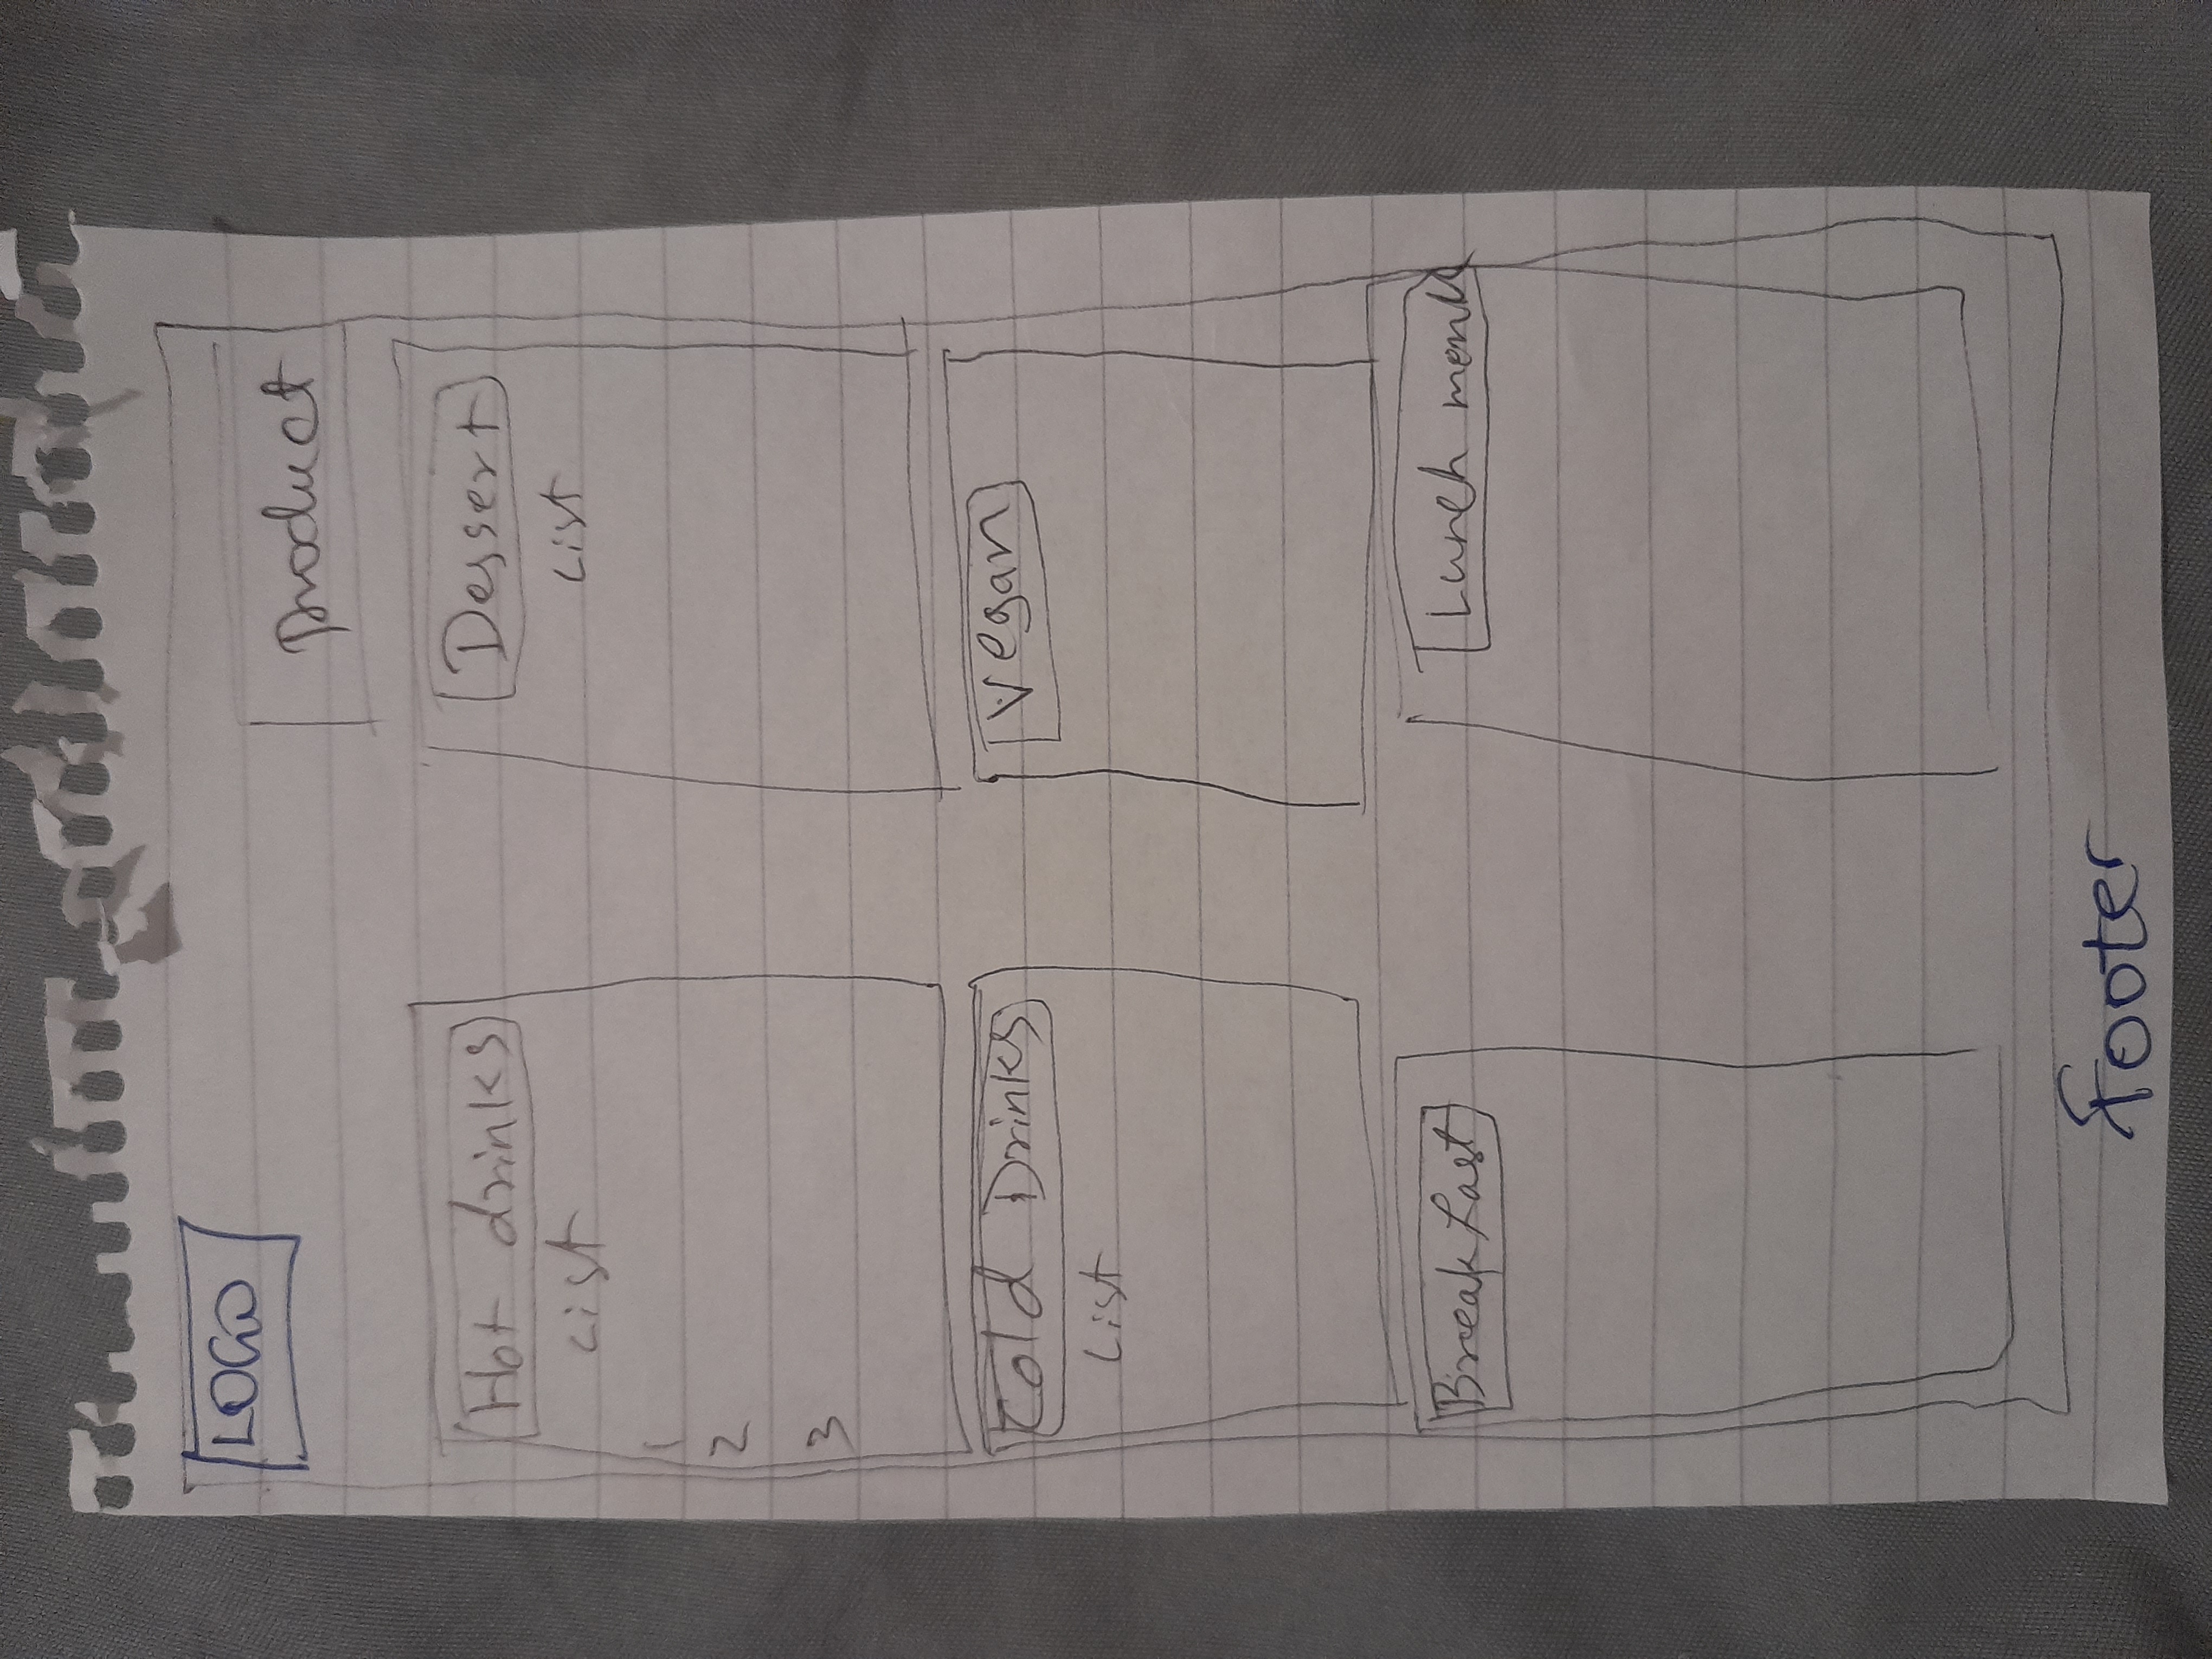 LOGO
product
Hot drinks
List
1
2
3
Dessert
List
Cold Drinks
List
Vegan
Breakfast
Lunch menu
Footer